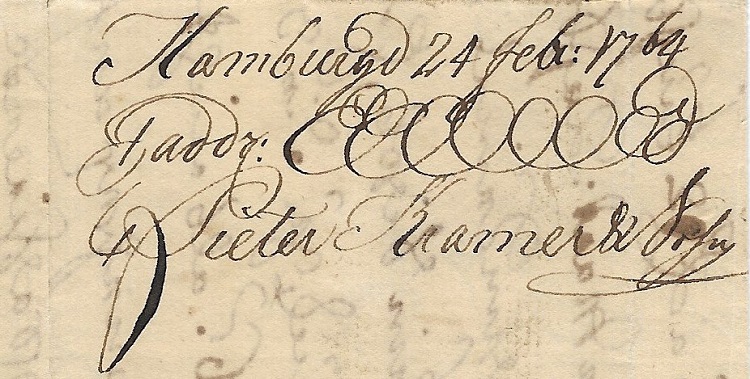 Hamburg d 24 febr: 1764
Faddy:
Pieter Kramer & Sohn